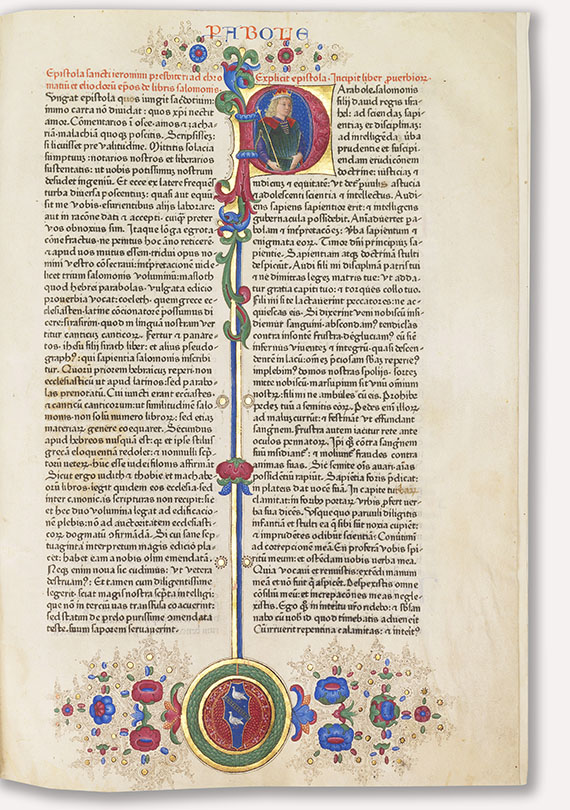 PABOLE
Epistola sancti ieronimi presbiteri ad chro
matiū et eliodorū epos de libris salomonis
Vngat epistola quos iungit sacdotium:
immo carta nō diuidat: quos xpi nectit
amor. Cōmentarios ī osee. amos & zacha
riā. malachiā quoqz poscitis. Scripsissez:
si licuisset pre valitudine. Mittitis solacia
sumptuuz: notarios nostros et librarios
sustentatis: ut uobis potissimuz nostrum
desudet ingeniū. Et ecce ex latere frequēs
turba diuersa poscentiuz: quasi aut equū
sit me vobis esurientibus alijs laborare:
aut in racōne dati & accepti. cuiqz preter
vos obnoxius sim. Itaqz lōga egrotati
cōne fractus. ne penitus hoc āno reticerē.
& apud uos mutus essem. tridui opus no
mini vestro cōsecraui: īnterpretacōne uide
licet trium salomonis voluminū: masloth
quod hebrei parabolas. vulgata edicio
prouerbia vocat: coeleth. quem grece ec
clesiasten. latine cōcionatorē possumus di
cere: sirasirim. quod in lingua nostram ver
titur canticū canticorz. Fertur & panare
tos. ihesu filij sirach liber: et alius pseudo
graph9: qui sapientia salomonis inscribi
tur. Quorū priorem hebraicuz reperi. non
ecclesiasticū ut apud latinos: sed parabo
las prenotatū. Cui iuncti erant ecciastes.
& canticū canticorum: ut similitudinē salo
monis. non solū numero librorz: sed etiaz
materiarz genere coequaret. Secundus
apud hebreos nusquā est: qr et ipse stilus
grecā eloquentiā redolet: & nonnulli scip
torū veterz. hūc esse iudei filonis affirmāt
Sicut ergo iudith & thobie et machabe
orū libros. legit quidem eos ecclesia. sed
inter canonicas scripturas non recipit: sic
et hec duo volumina legat ad edificatio
nē plebis: nō ad auctoritatem ecclesiasti
corz dogmatū ofirmandā. Si cui sane sep
tuaginta interpretum magis edicio pla
cet: habet eam a nobis olim emendatā.
Neqz enim noua sic cudimus: ut vetera
destruam9. Et tamen cum diligentissime
legerit. sciat magis nostra scipta intelligi:
que nō in tertiū uas trāsfusa coacuerint:
sed statim de prelo purissime omendata
teste. suum saporem seruauerint.
Explicit epistola. Incipit liber puerbiorz
Arabole salomonis
filij dauid regis isra
hel: ad sciendaz sapi
entiaz et disciplinaz:
ad intelligēda uba
prudentie et suscipi
endam eruditionem
doctrine: iusticiaz &
iudiciuz & equitatē: vt det puulis astucia
& adolescenti scientia & intellectus. Audi
ens sapiens sapientior erit: & intelligens
gubernacula possidebit. Aniaduertet pa
bolam & inspretacōez: vba sapientum &
enigmata eorz. Timor dni principiuz sa
pientie. Sapientiam atqz doctrinā stulti
despiciūt. Audi fili mi disciplinā patris tui
& ne dimittas legez matris tue: vt adda
tur gratia capiti tuo: & torques collo tuo.
Fili mi si te lactauerint peccatores: ne ac
quiescas eis. Si dixerint veni nobiscū insi
diemur sanguini. abscondam9 tendiclas
contra insontē frustra. deglutiam9 eū sic
infernus viuentez & integrū. quasi descen
dentem ī lacū: om̄ez pciosam sbāz reperie9
implebim9 domos nostras spolijs. sortez
mitte nobiscū. marsupium sit vnū omnium
nostrz: fili mi ne ambules cū eis. Prohibe
pedez tuū a semitis eorz. Pedes enī illorz
ad maluz currūt: & festināt vt effundant
sangnēm. Frustra autem iacitur rete. ante
oculos pennatorz. Ipi qz cōtra sangnēm
suū insidiant: & moliunt fraudes contra
animas suas. Sic semite oīs auari. aīas
possidentiū rapiūt. Sapiētia foris pdicat:
in plateis dat uocē suā. In capite turbarz
clamitat: in foribz portarz vrbis. pfert ver
ba sua dicēs. Vsquequo paruuli diligitis
infantiā et stulti ea q̄ sibi sūt noxia cupiēt:
& imprudētes odibūt scientiā: Conūtimi
ad correpcionē meā. En proferā vobis spi
ritū meum: et ostēdam uobis uerba mea.
Quia vocaui et rennuistis: extēdi manum
meā et nō fuit q̄ aspicēt. Despexistis omne
cōsiliū meū: et increpacōnes meas negle
xistis. Ego qz in interitu uro ridebo: & sbsan
nabo cū uob id quod timebatis aduenit
Cū irruerit repentina calamitas: & interit9